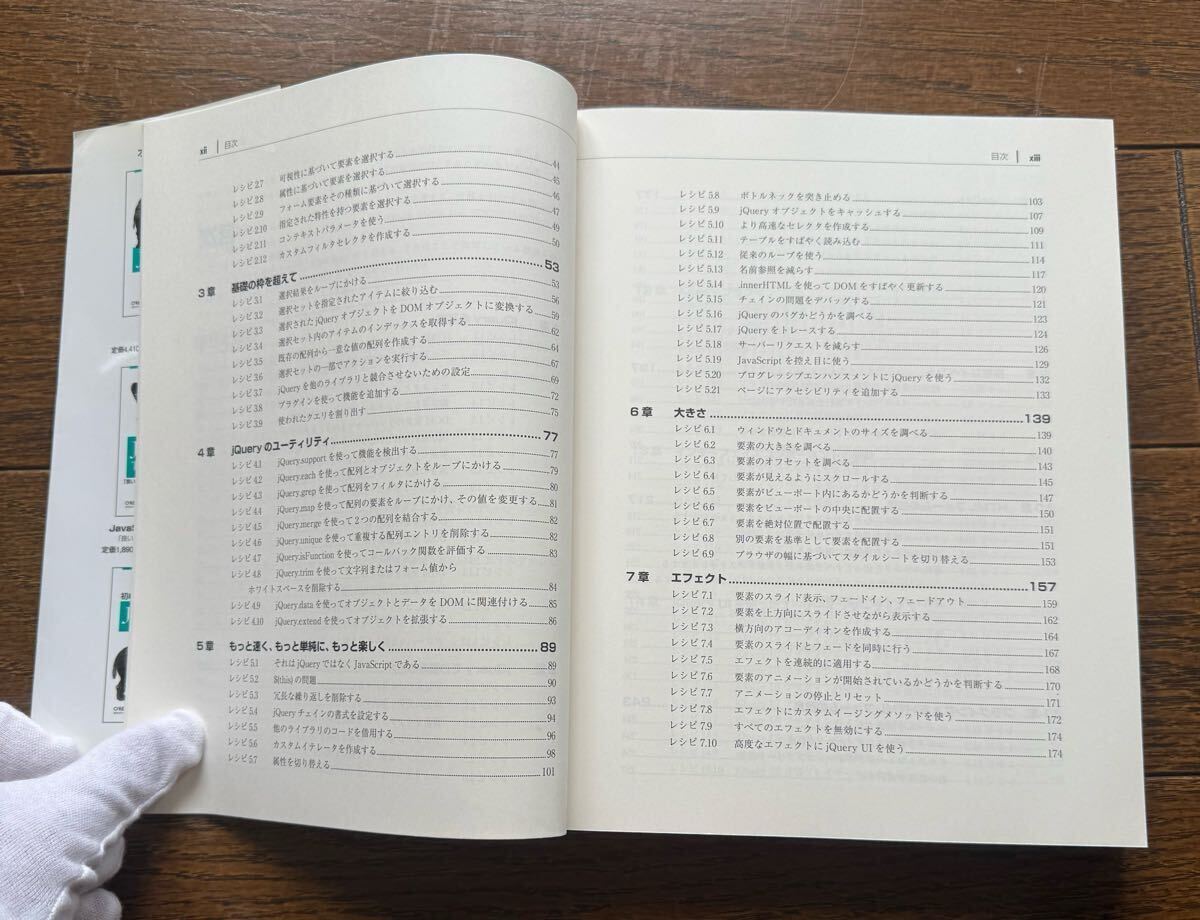 xii 目次
レシピ 2.7 可視性に基づいて要素を選択する 44
レシピ 2.8 属性に基づいて要素を選択する 45
レシピ 2.9 フォーム要素をその種類に基づいて選択する 46
レシピ 2.10 指定された特性を持つ要素を選択する 47
レシピ 2.11 コンテキストパラメータを使う 49
レシピ 2.12 カスタムフィルタセレクタを作成する 50
3章 基礎の枠を超えて 53
レシピ 3.1 選択結果をループにかける 53
レシピ 3.2 選択セットを指定されたアイテムに絞り込む 56
レシピ 3.3 選択された jQuery オブジェクトを DOM オブジェクトに変換する 59
レシピ 3.4 選択セット内のアイテムのインデックスを取得する 62
レシピ 3.5 既存の配列から一意な値の配列を作成する 64
レシピ 3.6 選択セットの一部でアクションを実行する 67
レシピ 3.7 jQuery を他のライブラリと競合させないための設定 69
レシピ 3.8 プラグインを使って機能を追加する 72
レシピ 3.9 使われたクエリを割り出す 75
4章 jQuery のユーティリティ 77
レシピ 4.1 jQuery.support を使って機能を検出する 77
レシピ 4.2 jQuery.each を使って配列とオブジェクトをループにかける 79
レシピ 4.3 jQuery.grep を使って配列をフィルタにかける 80
レシピ 4.4 jQuery.map を使って配列の要素をループにかけ、その値を変更する 81
レシピ 4.5 jQuery.merge を使って2つの配列を結合する 82
レシピ 4.6 jQuery.unique を使って重複する配列エントリを削除する 82
レシピ 4.7 jQuery.isFunction を使ってコールバック関数を評価する 83
レシピ 4.8 jQuery.trim を使って文字列またはフォーム値から
ホワイトスペースを削除する 84
レシピ 4.9 jQuery.data を使ってオブジェクトとデータを DOM に関連付ける 85
レシピ 4.10 jQuery.extend を使ってオブジェクトを拡張する 86
5章 もっと速く、もっと単純に、もっと楽しく 89
レシピ 5.1 それは jQuery ではなく JavaScript である 89
レシピ 5.2 $(this) の問題 90
レシピ 5.3 冗長な繰り返しを削除する 93
レシピ 5.4 jQuery チェインの書式を設定する 94
レシピ 5.5 他のライブラリのコードを借用する 96
レシピ 5.6 カスタムイテレータを作成する 98
レシピ 5.7 属性を切り替える 101
目次 xiii
レシピ 5.8 ボトルネックを突き止める 103
レシピ 5.9 jQuery オブジェクトをキャッシュする 107
レシピ 5.10 より高速なセレクタを作成する 109
レシピ 5.11 テーブルをすばやく読み込む 111
レシピ 5.12 従来のループを使う 114
レシピ 5.13 名前参照を減らす 117
レシピ 5.14 .innerHTML を使って DOM をすばやく更新する 120
レシピ 5.15 チェインの問題をデバッグする 121
レシピ 5.16 jQuery のバグかどうかを調べる 123
レシピ 5.17 jQuery をトレースする 124
レシピ 5.18 サーバーリクエストを減らす 126
レシピ 5.19 JavaScript を控え目に使う 129
レシピ 5.20 プログレッシブエンハンスメントに jQuery を使う 132
レシピ 5.21 ページにアクセシビリティを追加する 133
6章 大きさ 139
レシピ 6.1 ウィンドウとドキュメントのサイズを調べる 139
レシピ 6.2 要素の大きさを調べる 140
レシピ 6.3 要素のオフセットを調べる 143
レシピ 6.4 要素が見えるようにスクロールする 145
レシピ 6.5 要素がビューポート内にあるかどうかを判断する 147
レシピ 6.6 要素をビューポートの中央に配置する 150
レシピ 6.7 要素を絶対位置で配置する 151
レシピ 6.8 別の要素を基準として要素を配置する 151
レシピ 6.9 ブラウザの幅に基づいてスタイルシートを切り替える 153
7章 エフェクト 157
レシピ 7.1 要素のスライド表示、フェードイン、フェードアウト 159
レシピ 7.2 要素を上方向にスライドさせながら表示する 162
レシピ 7.3 横方向のアコーディオンを作成する 164
レシピ 7.4 要素のスライドとフェードを同時に行う 167
レシピ 7.5 エフェクトを連続的に適用する 168
レシピ 7.6 要素のアニメーションが開始されているかどうかを判断する 170
レシピ 7.7 アニメーションの停止とリセット 171
レシピ 7.8 エフェクトにカスタムイージングメソッドを使う 172
レシピ 7.9 すべてのエフェクトを無効にする 174
レシピ 7.10 高度なエフェクトに jQuery UI を使う 174
定価4,410
JavaS
定価1,890